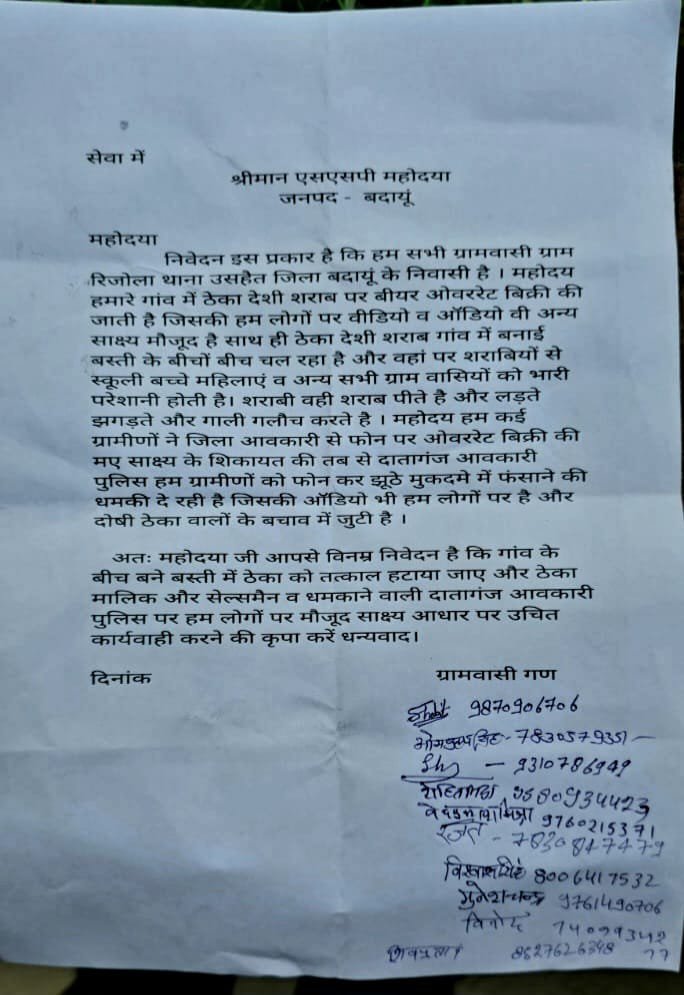 सेवा में
श्रीमान एसएसपी महोदया
जनपद - बदायूं
महोदया
निवेदन इस प्रकार है कि हम सभी ग्रामवासी ग्राम
रिजोला थाना उसहैत जिला बदायूं के निवासी है । महोदय
हमारे गांव में ठेका देशी शराब पर बीयर ओवररेट बिक्री की
जाती है जिसकी हम लोगों पर वीडियो व ऑडियो वी अन्य
साक्ष्य मौजूद है साथ ही ठेका देशी शराब गांव में बनाई
बस्ती के बीचों बीच चल रहा है और वहां पर शराबियों से
स्कूली बच्चे महिलाएं व अन्य सभी ग्राम वासियों को भारी
परेशानी होती है। शराबी वही शराब पीते है और लड़ते
झगड़ते और गाली गलौच करते है । महोदय हम कई
ग्रामीणों ने जिला आवकारी से फोन पर ओवररेट बिक्री की
मए साक्ष्य के शिकायत की तब से दातागंज आवकारी
पुलिस हम ग्रामीणों को फोन कर झूठे मुकदमे में फंसाने की
धमकी दे रही है जिसकी ऑडियो भी हम लोगों पर है और
दोषी ठेका वालों के बचाव में जुटी है ।
अतः महोदया जी आपसे विनम्र निवेदन है कि गांव के
बीच बने बस्ती में ठेका को तत्काल हटाया जाए और ठेका
मालिक और सेल्समैन व धमकाने वाली दातागंज आवकारी
पुलिस पर हम लोगों पर मौजूद साक्ष्य आधार पर उचित
कार्यवाही करने की कृपा करें धन्यवाद।
दिनांक
ग्रामवासी गण
9870906706
- 7830579351 -
- 9310786949
9580934423
9760215371
रजत - 7830847479
विश्वास सिंह 8006417532
मुनेश चन्द्र 9761490706
विनोद
8627626348